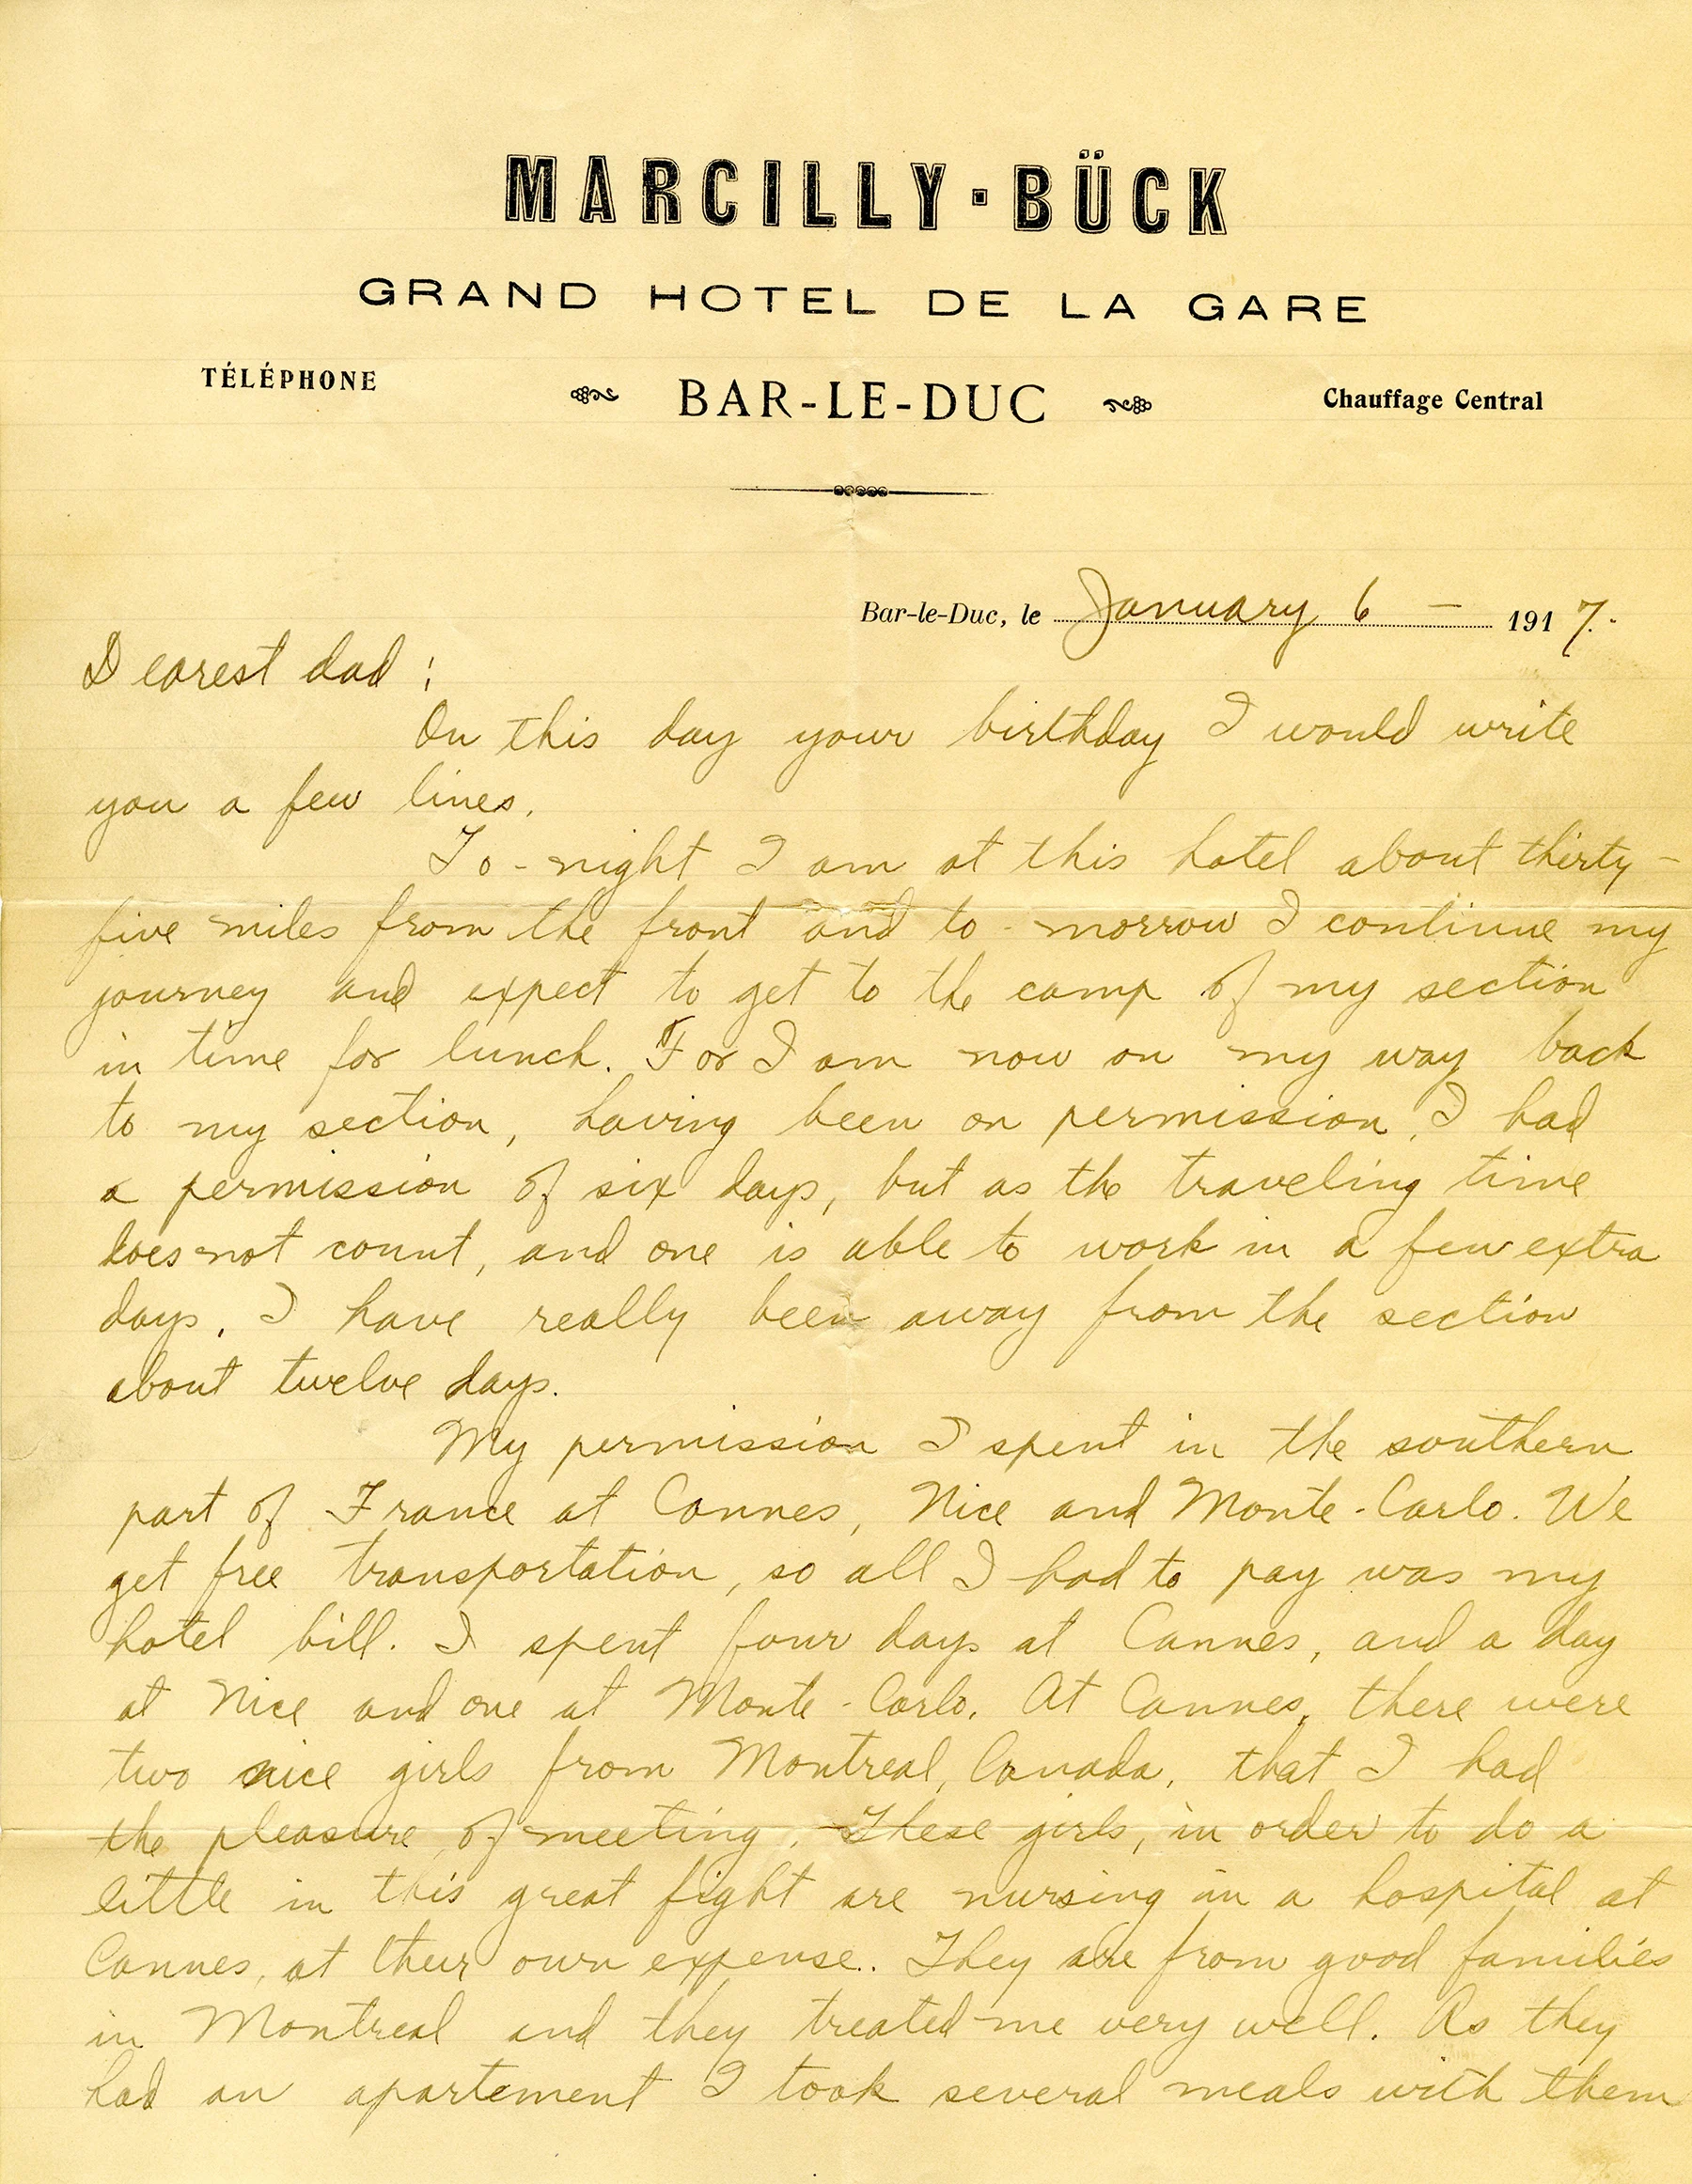 MARCILLY · BÜCK
GRAND HOTEL DE LA GARE
TÉLÉPHONE
BAR-LE-DUC
Chauffage Central
Bar-le-Duc, le January 6 — 1917.
Dearest dad :
On this day your birthday I would write
you a few lines.
To-night I am at this hotel about thirty-
five miles from the front and to-morrow I continue my
journey and expect to get to the camp of my section
in time for lunch. For I am now on my way back
to my section, having been on permission. I had
a permission of six days, but as the traveling time
does not count, and one is able to work in a few extra
days, I have really been away from the section
about twelve days.
My permission I spent in the southern
part of France at Cannes, Nice and Monte-Carlo. We
get free transportation, so all I had to pay was my
hotel bill. I spent four days at Cannes, and a day
at Nice and one at Monte-Carlo. At Cannes, there were
two nice girls from Montreal, Canada, that I had
the pleasure of meeting. These girls, in order to do a
little in this great fight are nursing in a hospital at
Cannes, at their own expense. They are from good families
in Montreal and they treated me very well. As they
had an apartement I took several meals with them